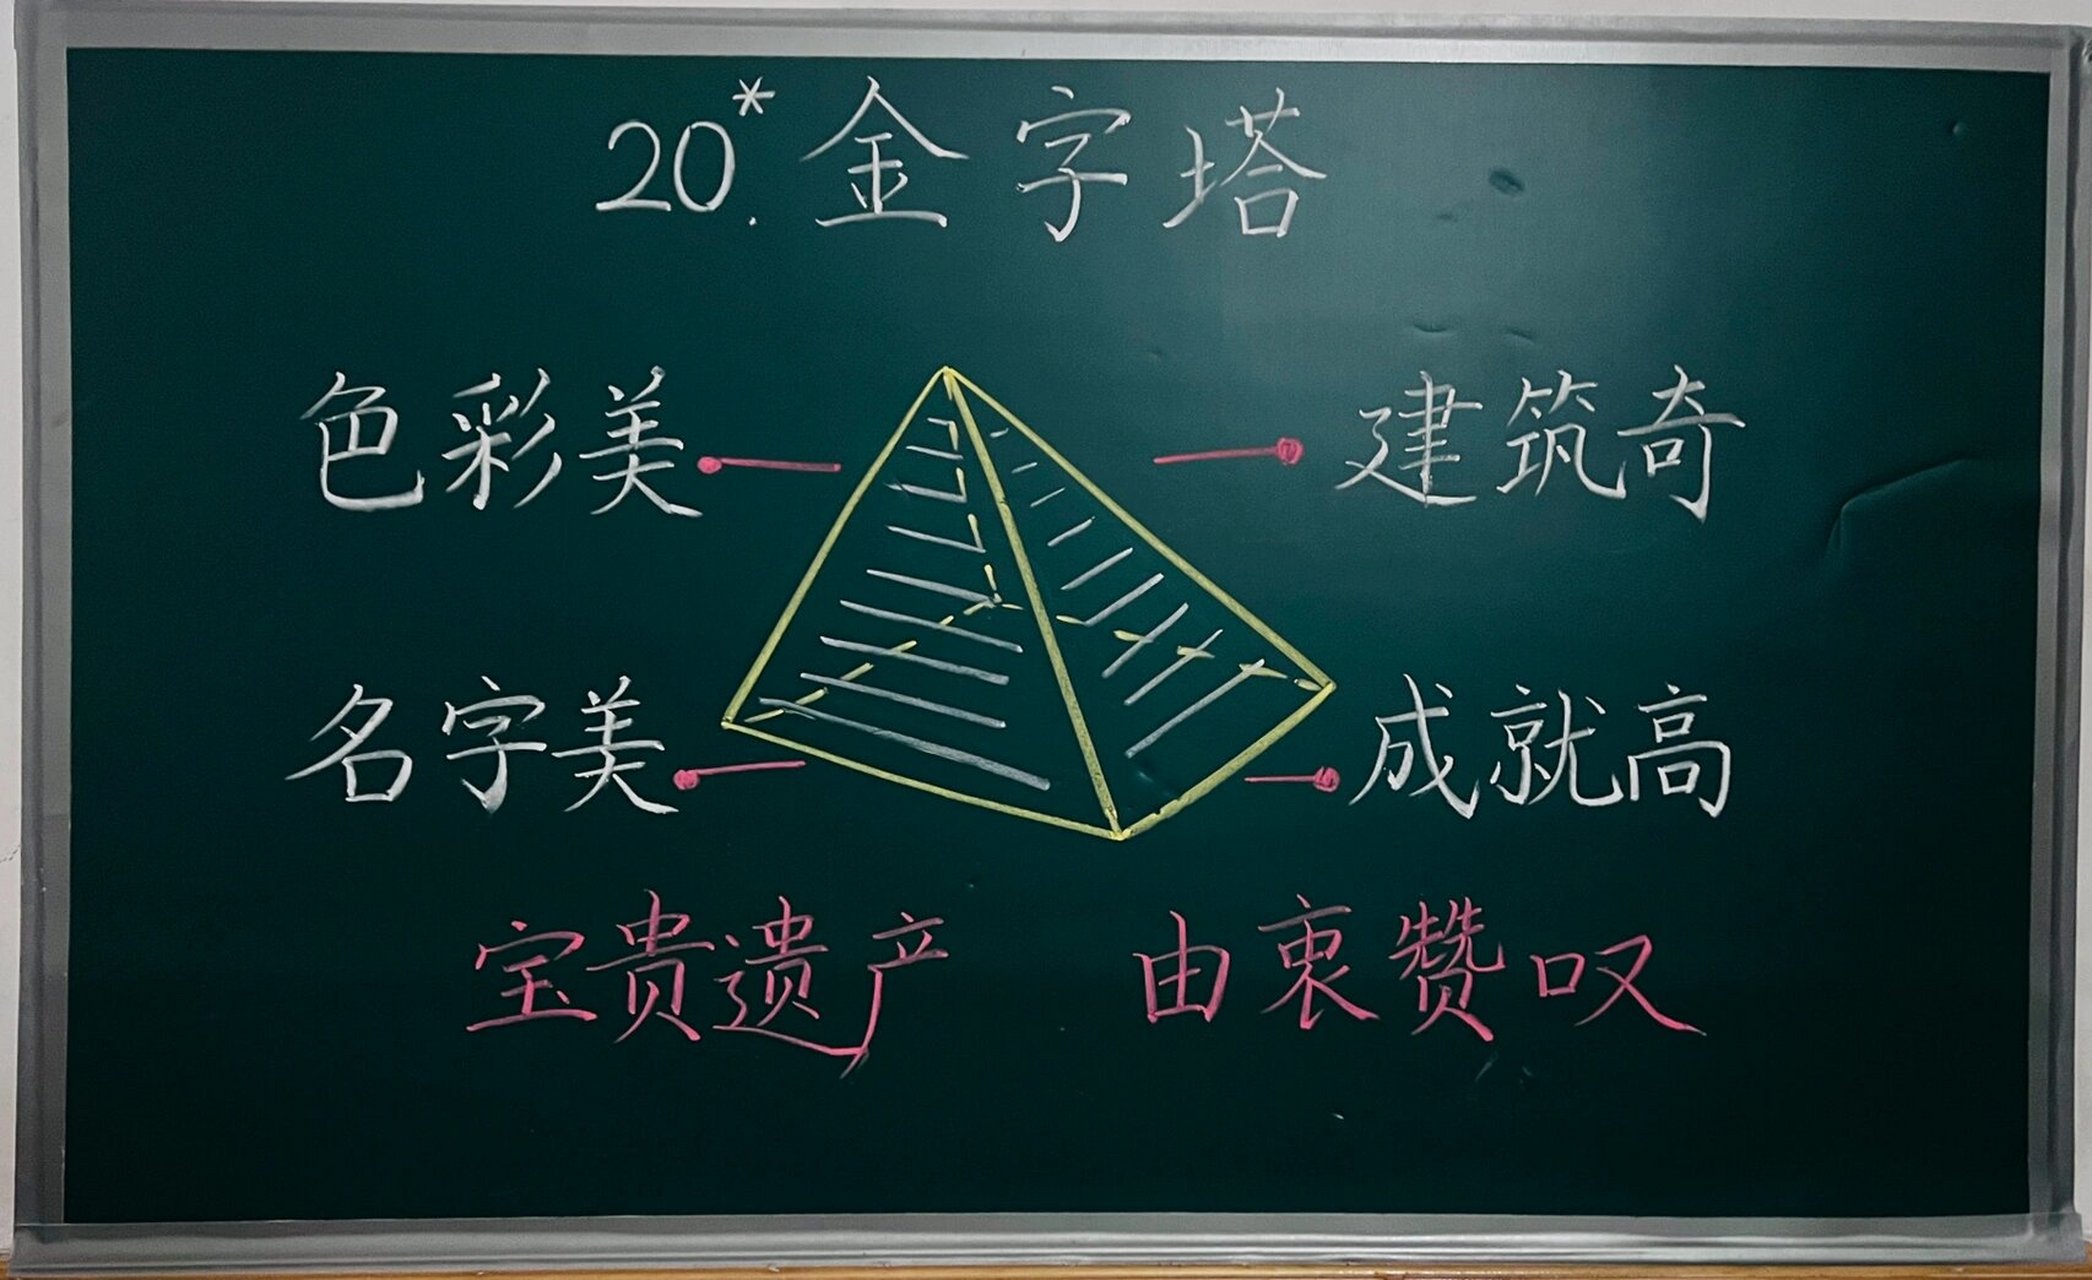 20*.金字塔
色彩美 建筑奇
名字美 成就高
宝贵遗产 由衷赞叹